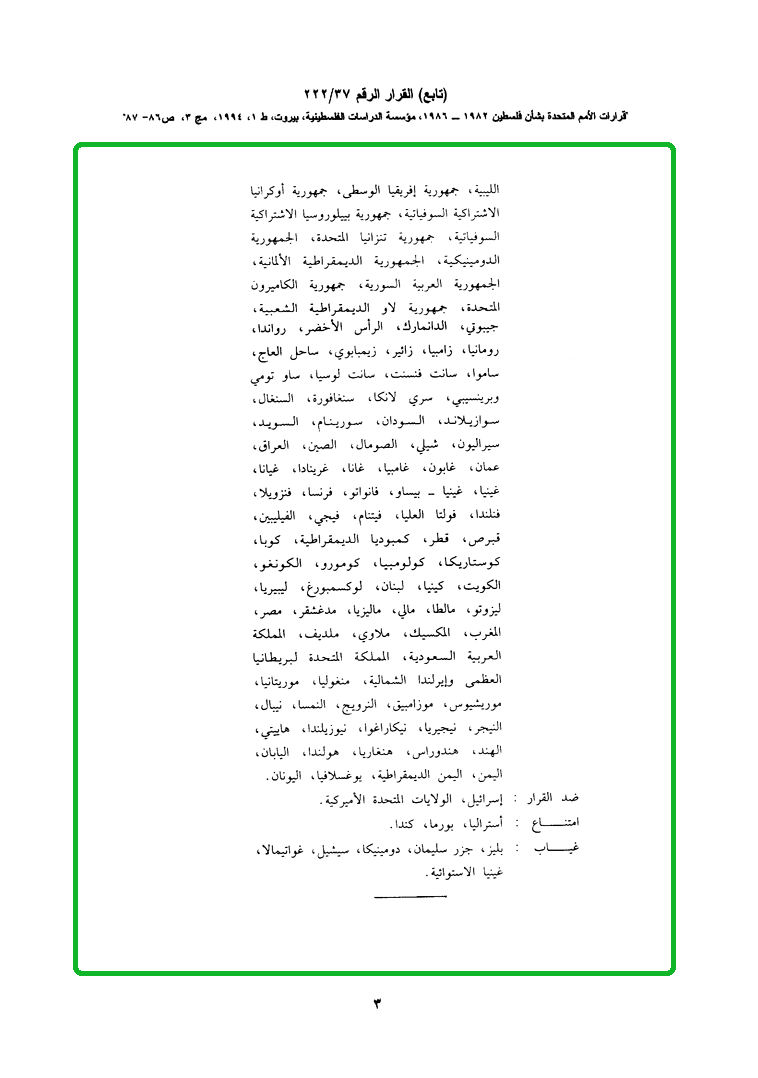 (تابع) القرار الرقم ٢٢٢/٣٧
"قرارات الأمم المتحدة بشأن فلسطين ١٩٨٢ ــ ١٩٨٦، مؤسسة الدراسات الفلسطينية، بيروت، ط ١، ١٩٩٤، مج ٣، ص٨٦- ٨٧"
الليبية، جمهورية إفريقيا الوسطى، جمهورية أوكرانيا
الاشتراكية السوفياتية، جمهورية بييلوروسيا الاشتراكية
السوفياتية، جمهورية تنزانيا المتحدة، الجمهورية
الدومينيكية، الجمهورية الديمقراطية الألمانية،
الجمهورية العربية السورية، جمهورية الكاميرون
المتحدة، جمهورية لاو الديمقراطية الشعبية،
جيبوتي، الدانمارك، الرأس الأخضر، رواندا،
رومانيا، زامبيا، زائير، زيمبابوي، ساحل العاج،
ساموا، سانت فنسنت، سانت لوسيا، ساو تومي
وبرينسيبي، سري لانكا، سنغافورة، السنغال،
سوازيلاند، السودان، سورينام، السويد،
سيراليون، شيلي، الصومال، الصين، العراق،
عمان، غابون، غامبيا، غانا، غرينادا، غيانا،
غينيا، غينيا ــ بيساو، فانواتو، فرنسا، فنزويلا،
فنلندا، فولتا العليا، فيتنام، فيجي، الفيليبين،
قبرص، قطر، كمبوديا الديمقراطية، كوبا،
كوستاريكا، كولومبيا، كومورو، الكونغو،
الكويت، كينيا، لبنان، لوكسمبورغ، ليبيريا،
ليزوتو، مالطا، مالي، ماليزيا، مدغشقر، مصر،
المغرب، المكسيك، ملاوي، ملديف، المملكة
العربية السعودية، المملكة المتحدة لبريطانيا
العظمى وإيرلندا الشمالية، منغوليا، موريتانيا،
موريشيوس، موزامبيق، النرويج، النمسا، نيبال،
النيجر، نيجيريا، نيكاراغوا، نيوزيلندا، هاييتي،
الهند، هندوراس، هنغاريا، هولندا، اليابان،
اليمن، اليمن الديمقراطية، يوغسلافيا، اليونان.
ضد القرار : إسرائيل، الولايات المتحدة الأميركية.
امتنـــاع : أستراليا، بورما، كندا.
غيـــاب : بليز، جزر سليمان، دومينيكا، سيشيل، غواتيمالا،
غينيا الاستوائية.
٣